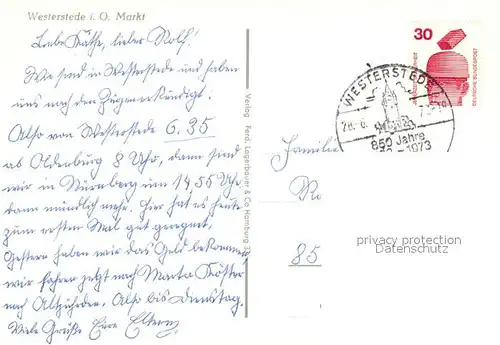 Westerstede i. O. Markt
Liebe Käthe, lieber Rolf!
Wir sind in Westerstede und haben
uns nach den Zügen erkündigt.
Also von Westerstede 6.35
ab Oldenburg 8 Uhr, dann sind
wir in Nürnberg um 14.55 Uhr,
dann mündlich mehr. Hier hat es heute
zum ersten Mal gut geregnet,
Gestern haben wir das Geld bekommen
wir fahren jetzt nach Marta Köster
nach. Also bis Dienstag.
Viele Grüße Eure Eltern
Verlag Ferd. Lagerbauer & Co Hamburg
30
DEUTSCHE BUNDESPOST
WESTERSTEDE
850 Jahre
1973
Familie
Ro
85
privacy protection
Datenschutz